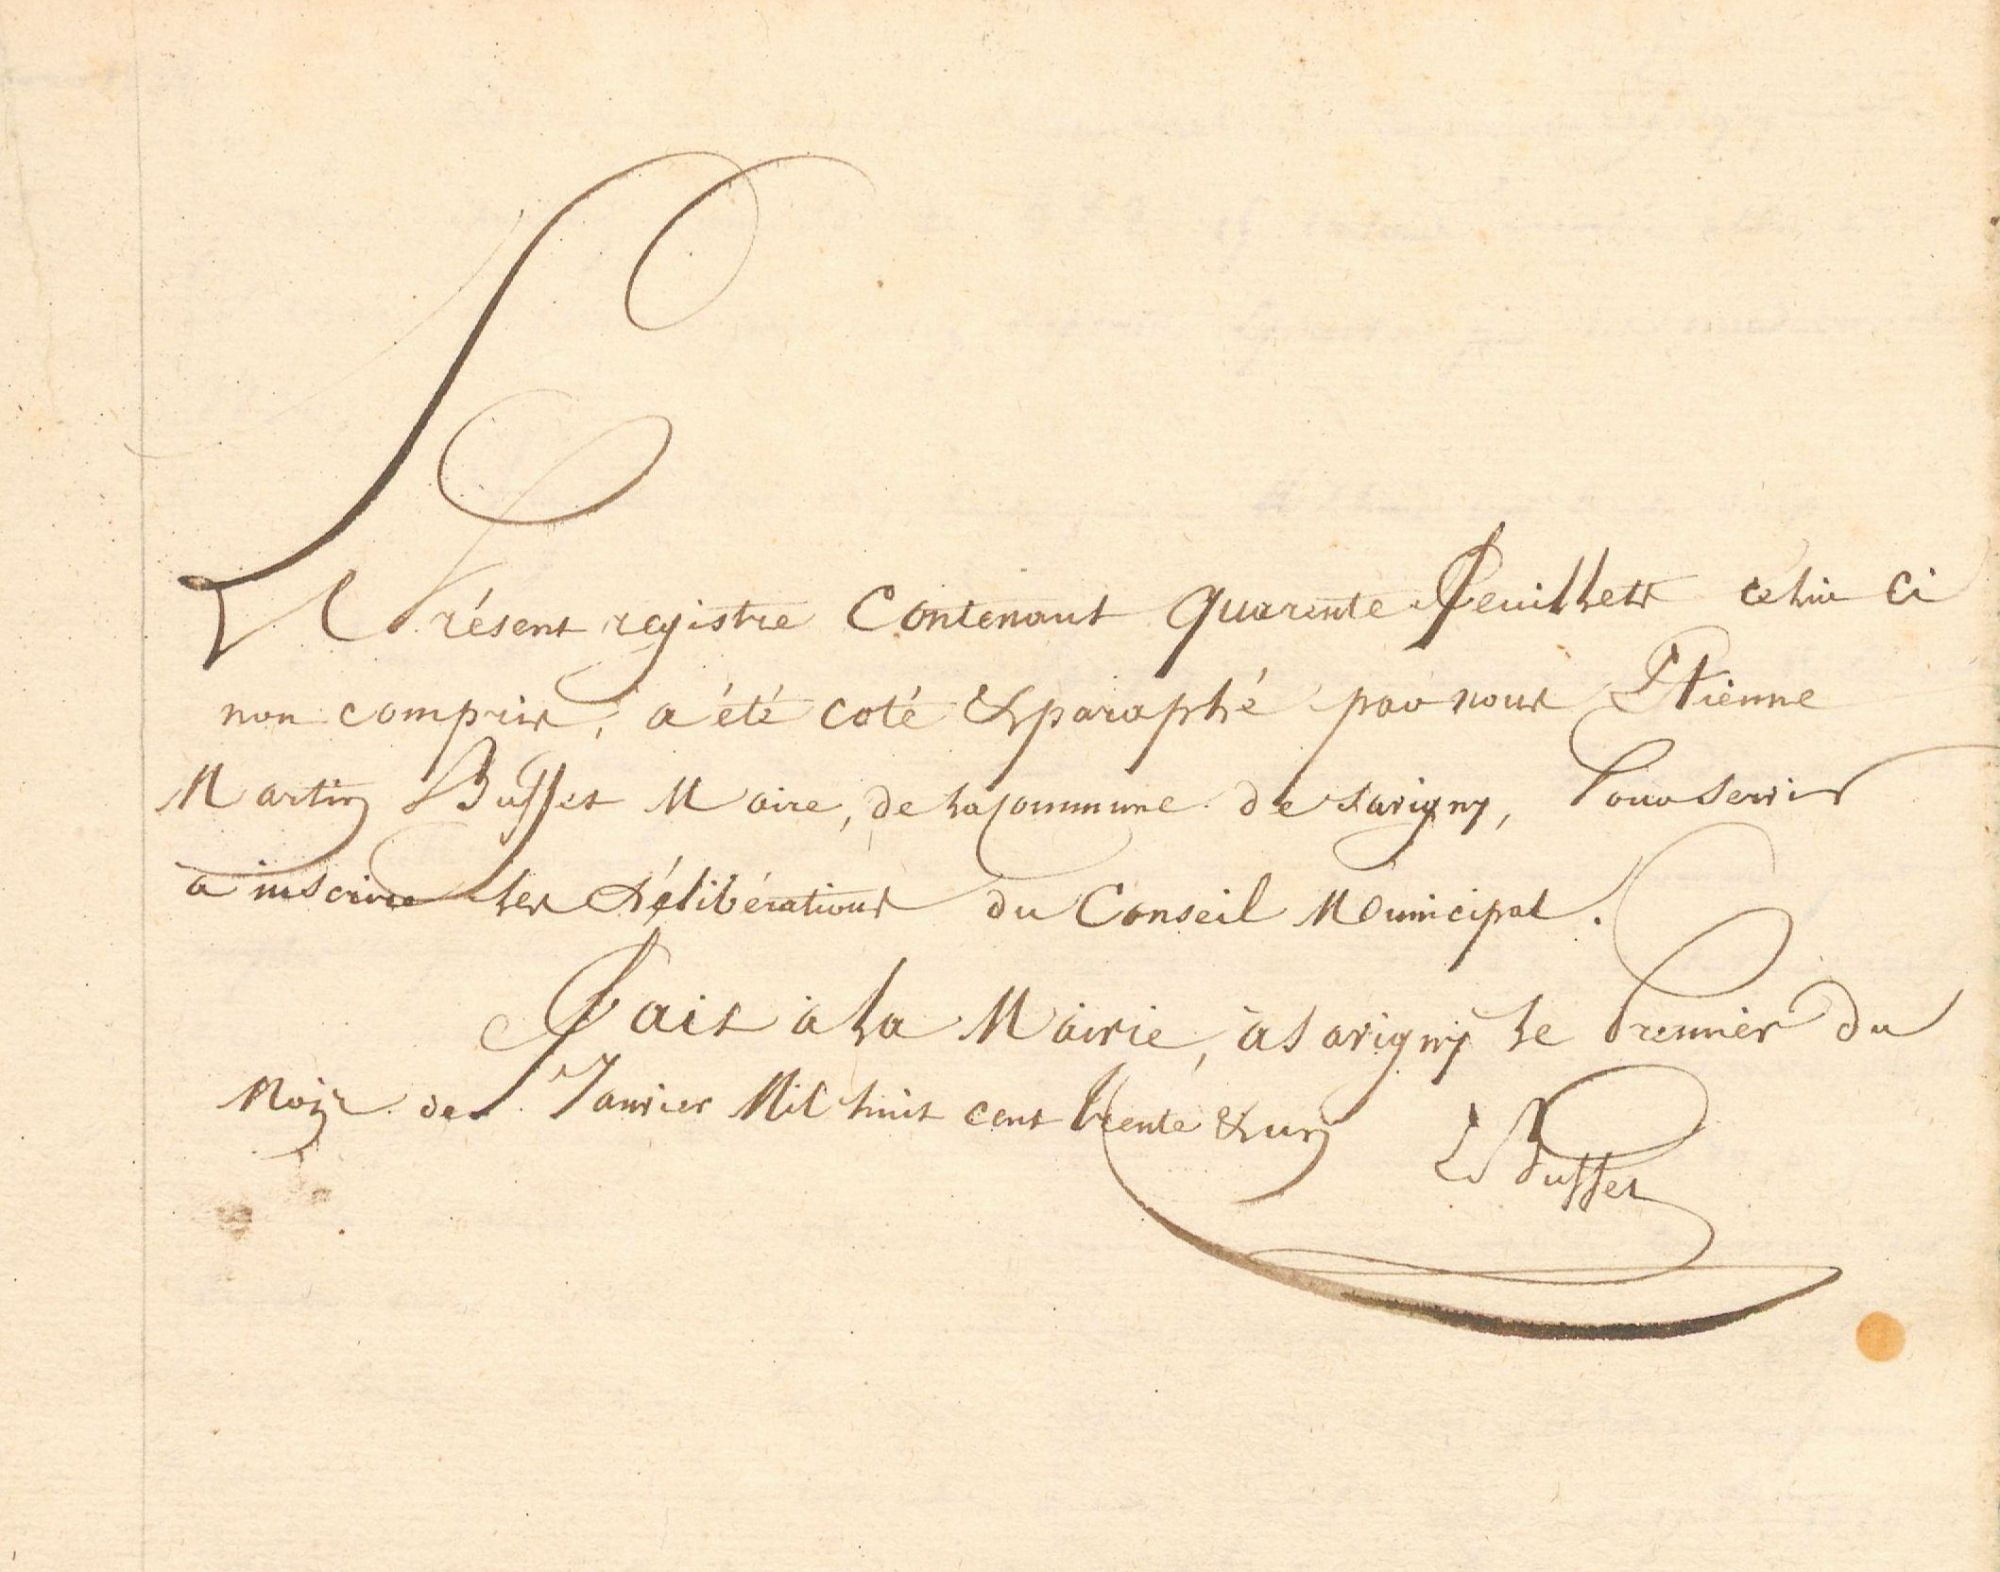 Le Présent registre Contenant Quarente feuillets celui ci
non compris, a été coté & paraphé par nous Etienne
Martin Buffet Maire, de la Commune de Savigny, Pour servir
à inscrire les Délibérations du Conseil Municipal.
Fait à la Mairie, à Savigny le Premier du
Mois de Janvier Mil huit cent trente & un
Buffet